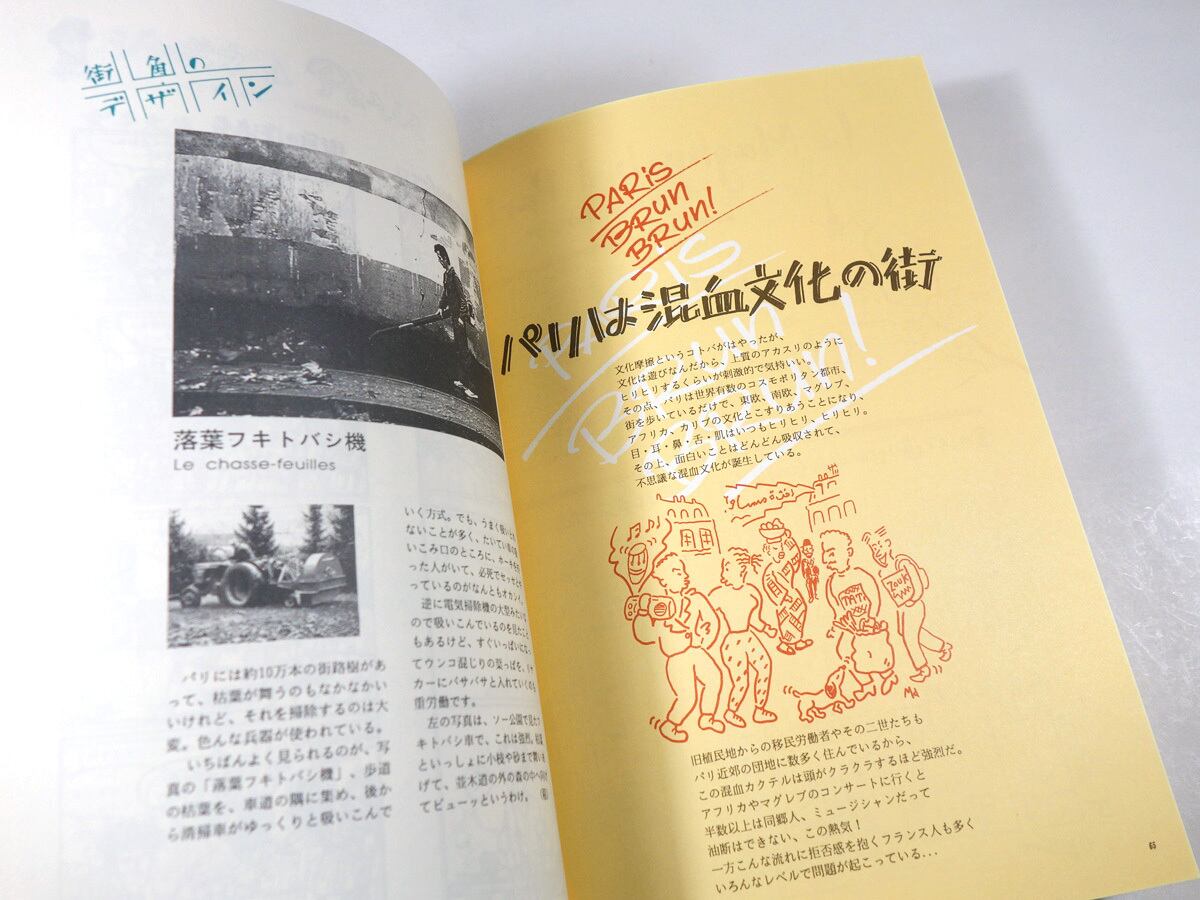 街角の
デザイン
落葉フキトバシ機
Le chasse-feuilles
パリには約10万本の街路樹があ
って、枯葉が舞うのもなかなかい
いけれど、それを掃除するのは大
変。色んな兵器が使われている。
いちばんよく見られるのが、写
真の「落葉フキトバシ機」、歩道
の枯葉を、車道の隅に集め、後か
ら清掃車がゆっくりと吸いこんで
いく方式。でも、うまく吸い
ないことが多く、たいてい
いこみ口のところに、ホー
った人がいて、必死でセッセと
っているのがなんともオカシイ。
逆に電気掃除機の大型みたいな
ので吸いこんでいるのを見たこと
もあるけど、すぐいっぱいになっ
てウンコ混じりの葉っぱを、トラッ
カーにバサバサと入れていくのも
重労働です。
左の写真は、ソー公園で見たフ
キトバシ車で、これは強烈。枯葉
といっしょに小枝や砂まで舞い上
げて、並木道の外の森の中へ向け
てビューッというわけ。
PARiS
BRUN
BRUN!
PARiS
BRUN
BRUN!
パリは混血文化の街
文化摩擦というコトバがはやったが、
文化は遊びなんだから、上質のアカスリのように
ヒリヒリするくらいが刺激的で気持いい。
その点、パリは世界有数のコスモポリタン都市、
街を歩いているだけで、東欧、南欧、マグレブ、
アフリカ、カリブの文化とこすりあうことになり、
目・耳・鼻・舌・肌はいつもヒリヒリ、ヒリヒリ。
その上、面白いことはどんどん吸収されて、
不思議な混血文化が誕生している。
TATI
ZOUK
MA
旧植民地からの移民労働者やその二世たちも
パリ近郊の団地に数多く住んでいるから、
この混血カクテルは頭がクラクラするほど強烈だ。
アフリカやマグレブのコンサートに行くと
半数以上は同郷人、ミュージシャンだって
油断はできない、この熱気！
一方こんな流れに拒否感を抱くフランス人も多く
いろんなレベルで問題が起こっている...
65